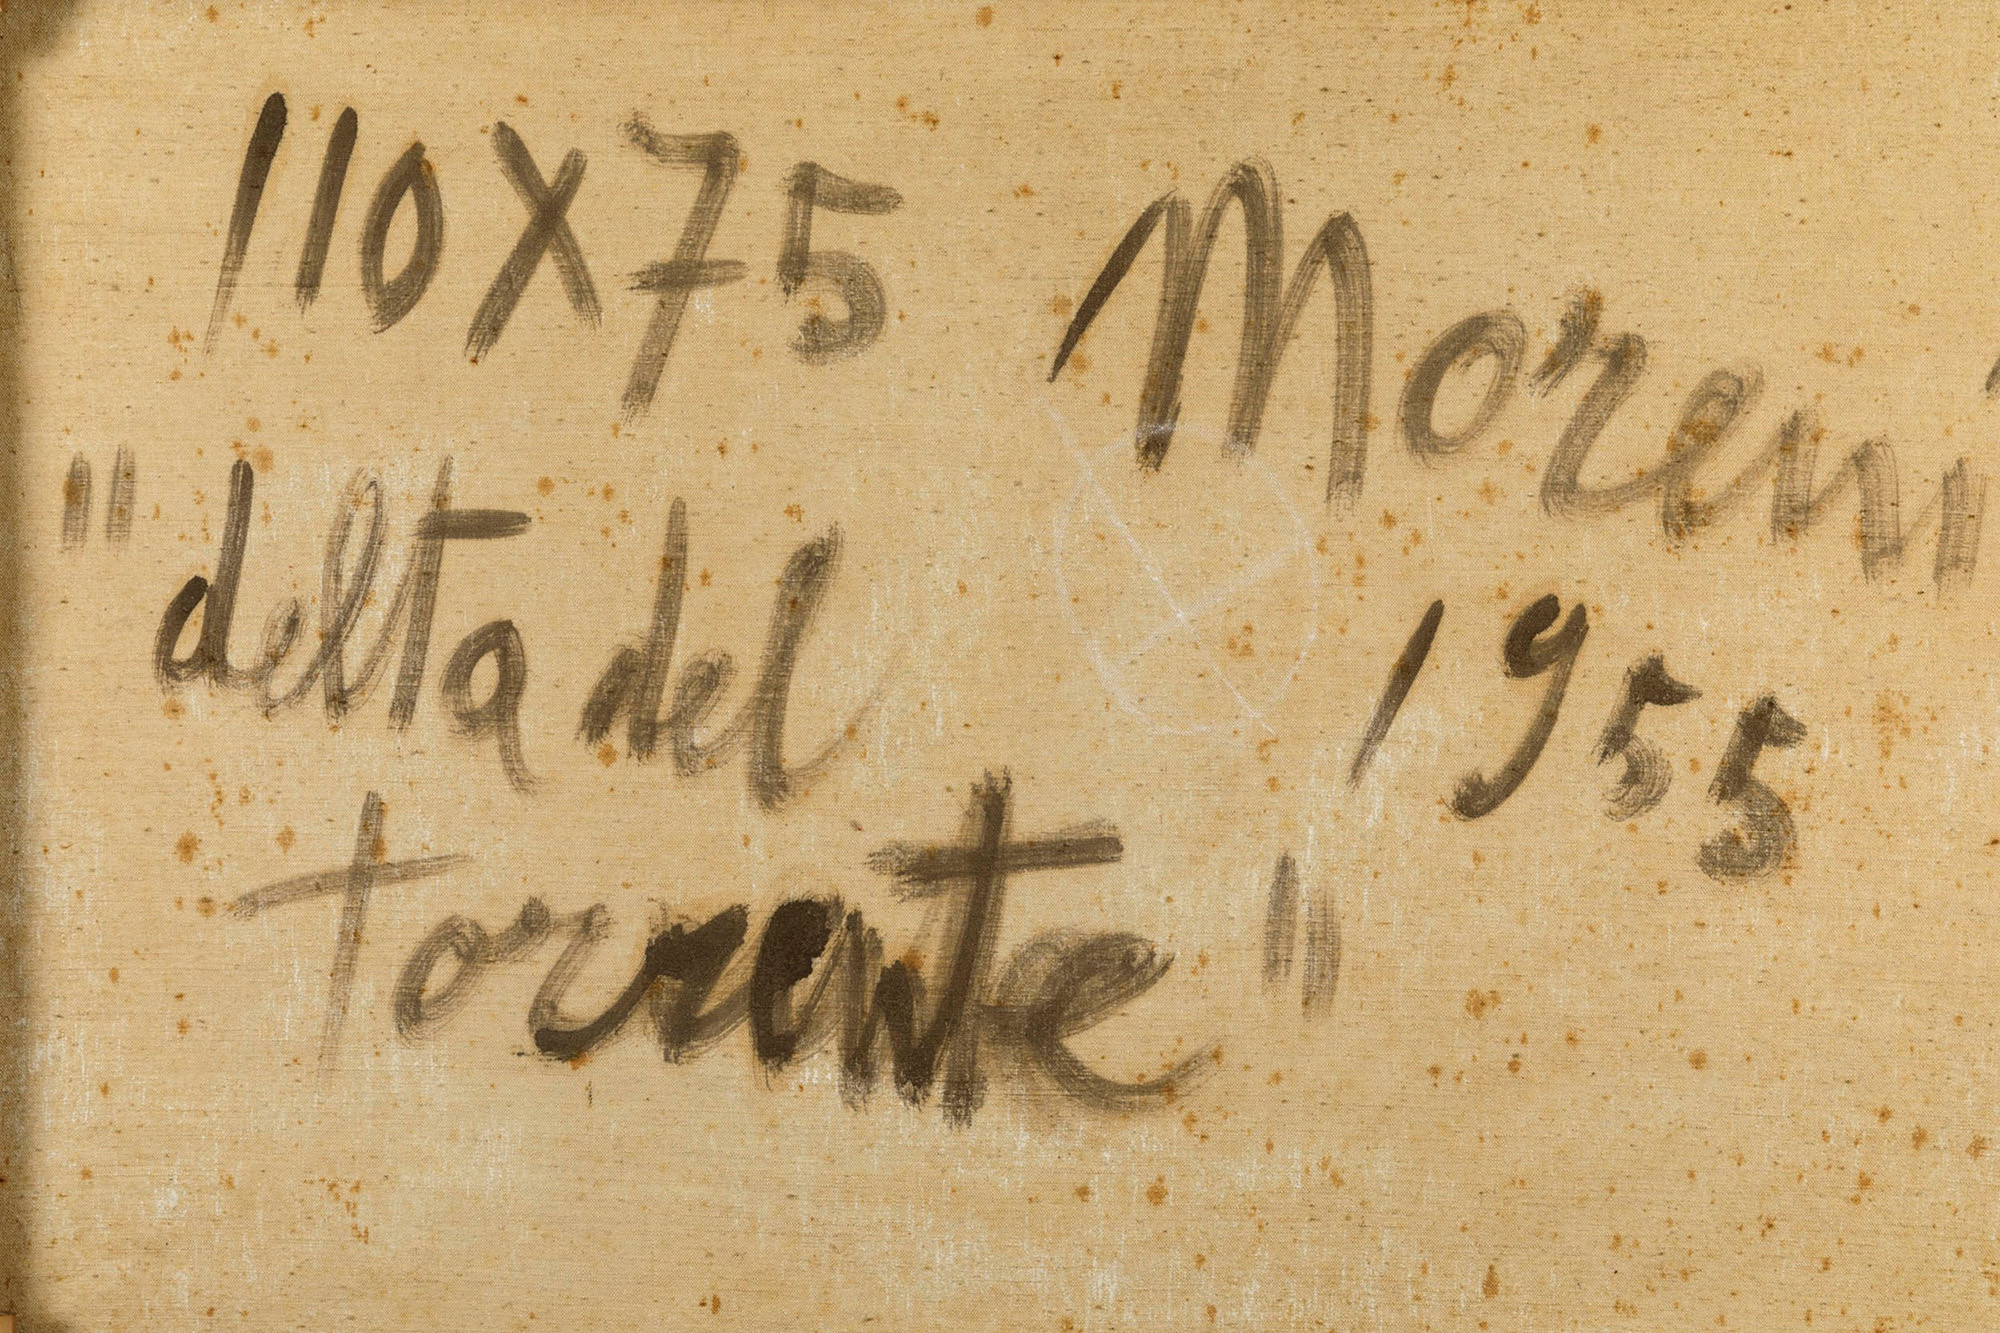 110X75 Moreni
"delta del
1955
torrente"